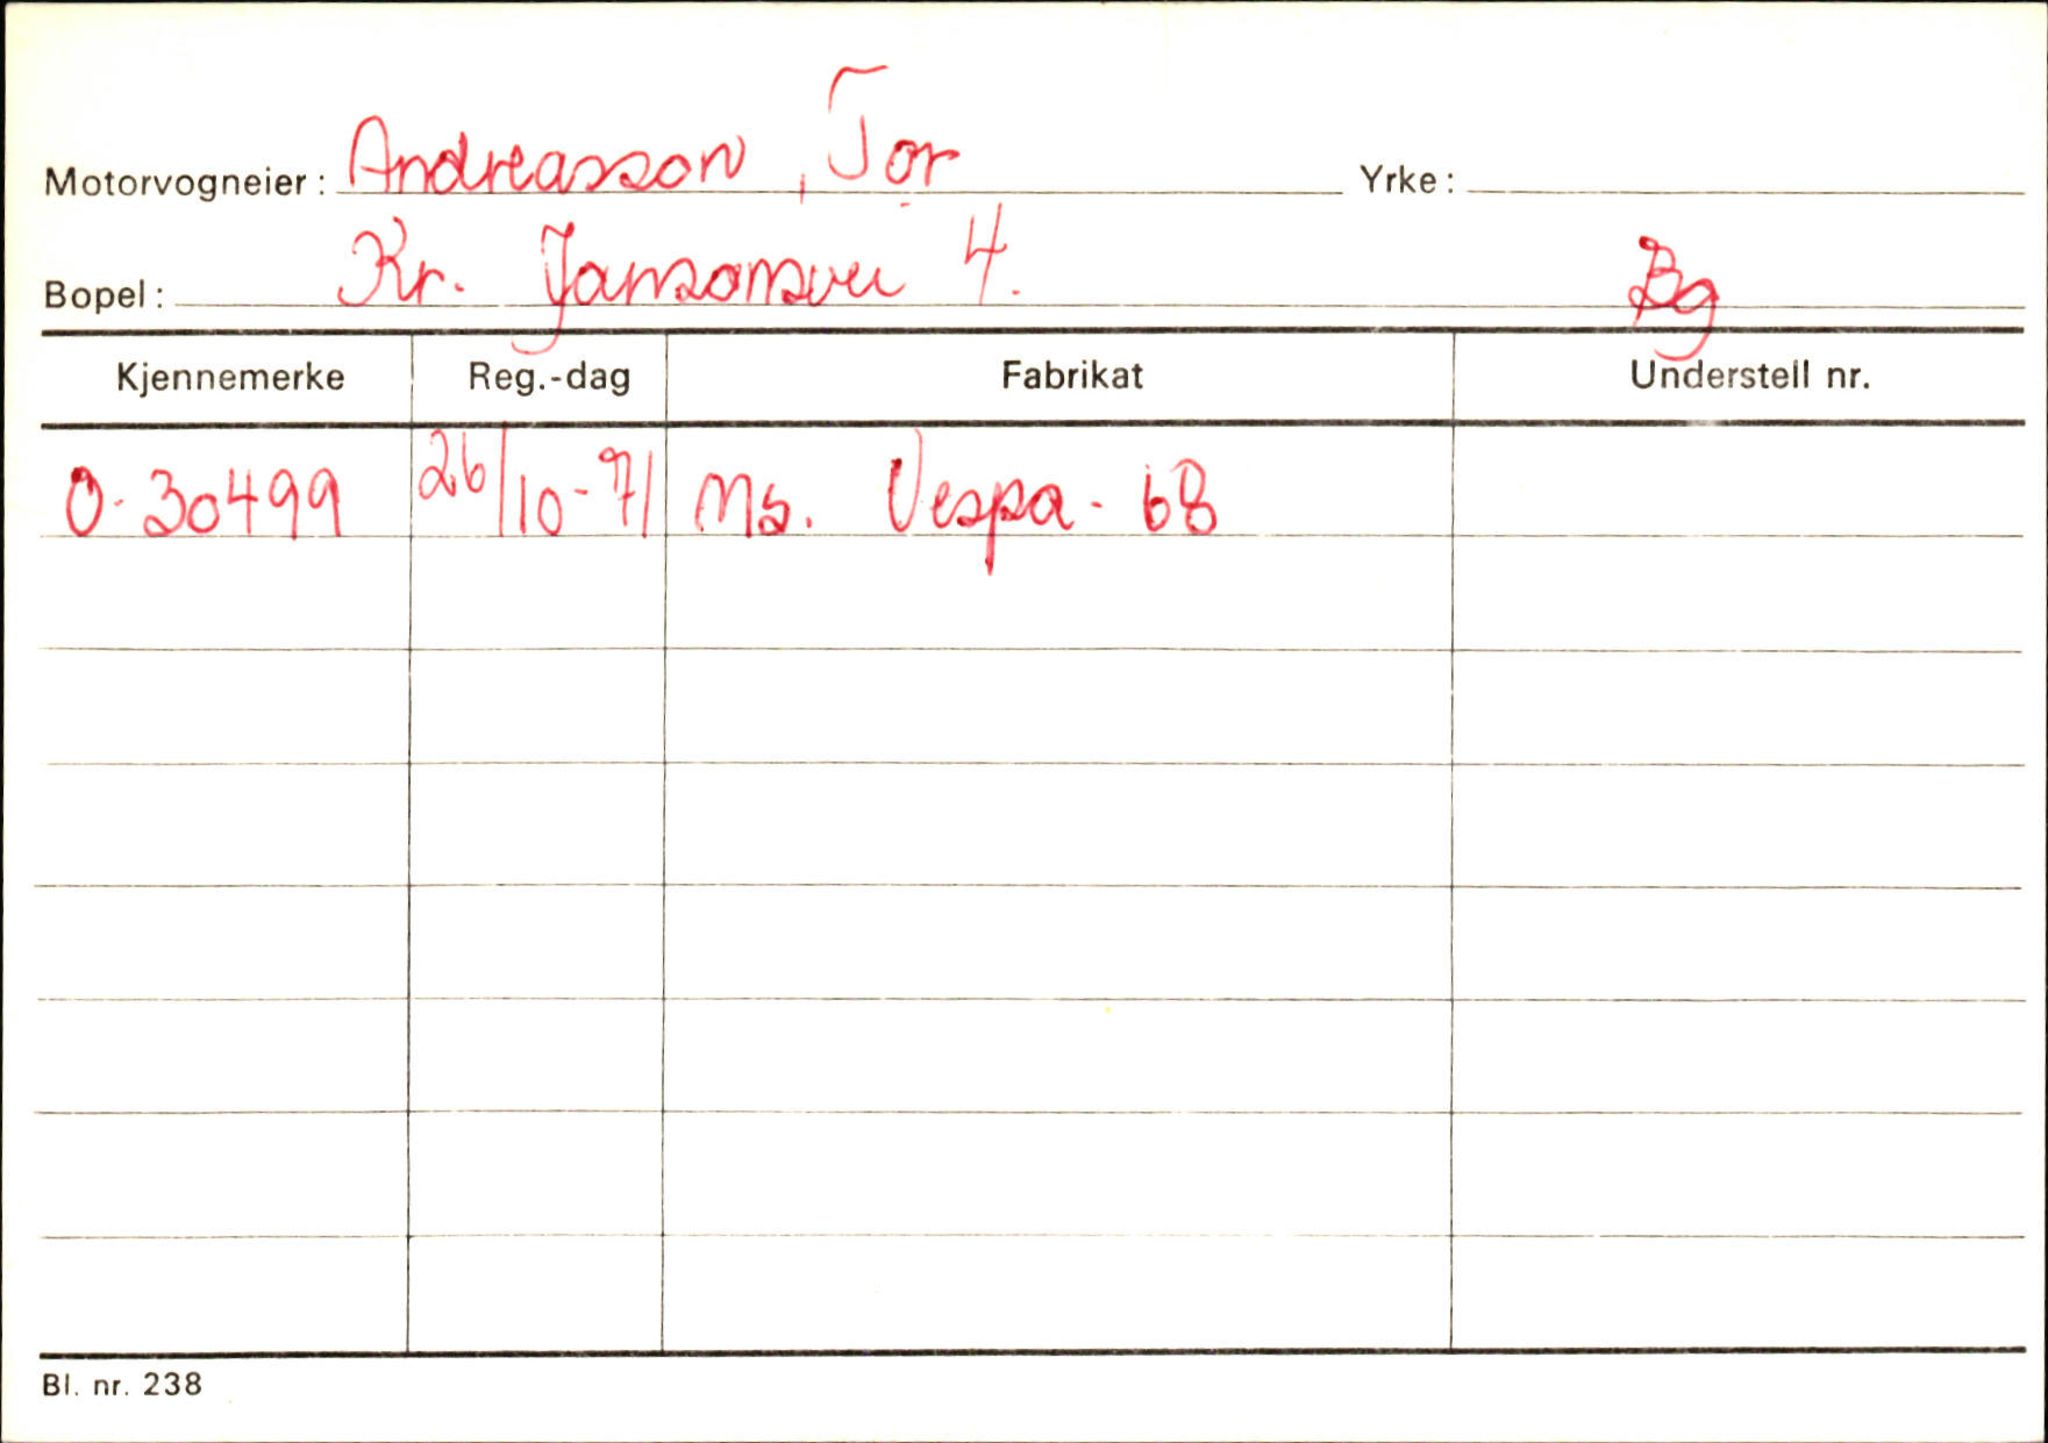 Motorvogneier: Andreasson, Tor Yrke:
Bopel: Kr. Jansonsvei 4. Bg
Kjennemerke Reg.-dag Fabrikat Understell nr.
O-30499 26/10-71 Ms. Vespa - 68
Bl. nr. 238